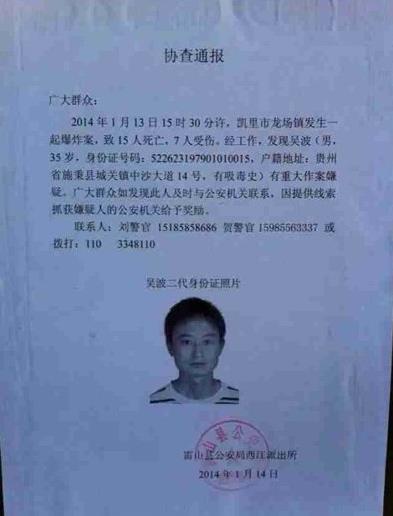 协查通报
广大群众：
2014 年 1 月 13 日 15 时 30 分许，凯里市龙场镇发生一
起爆炸案，致 15 人死亡，7 人受伤。经工作，发现吴波（男，
35 岁，身份证号码：522623197901010015，户籍地址：贵州
省施秉县城关镇中沙大道 14 号，有吸毒史）有重大作案嫌
疑。广大群众如发现此人及时与公安机关联系，因提供线索
抓获嫌疑人的公安机关给予奖励。
联系人：刘警官 15185858686 贺警官 15985563337 或
拨打：110 3348110
吴波二代身份证照片
雷山县公安局西江派出所
2014 年 1 月 14 日